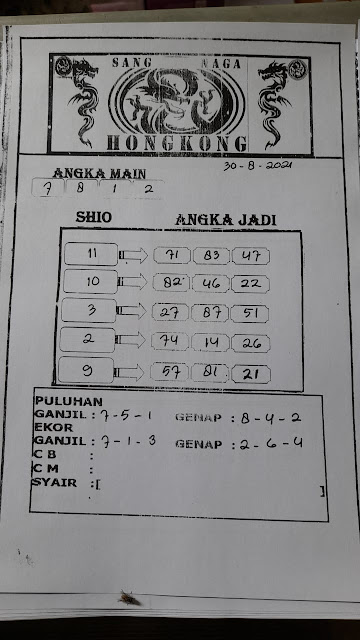 SANG NAGA
HONGKONG
30-8-2021
ANGKA MAIN
7 8 1 2
SHIO ANGKA JADI
11 71 83 47
10 82 46 22
3 27 87 51
2 74 14 26
9 57 81 21
PULUHAN
GANJIL : 7-5-1 GENAP : 8-4-2
EKOR
GANJIL : 7-1-3 GENAP : 2-6-4
C B :
C M :
SYAIR :[ ]